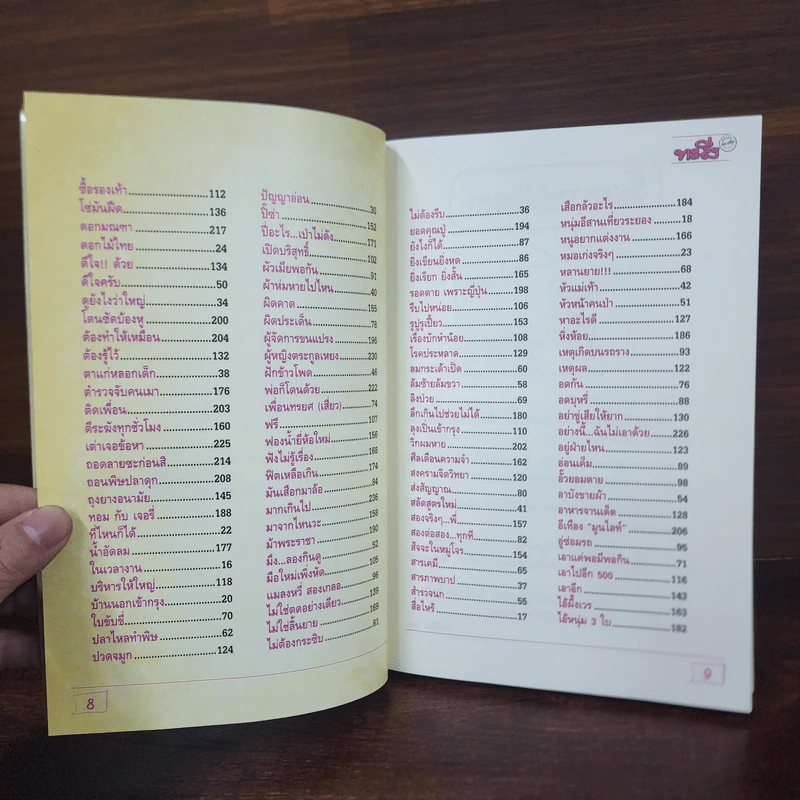 ซื้อรองเท้า 112
โซ่มันฝืด 136
ดอกมณฑา 217
ดอกไม้ไทย 24
ดีใจ!! ด้วย 134
ดีใจครับ 50
ดูยังไงว่าใหญ่ 34
โดนซัดบ้องหู 200
ต้องทำให้เหมือน 204
ต้องรู้ไว้ 132
ตาแก่หลอกเด็ก 38
ตำรวจจับคนเมา 176
ติดเพื่อน 203
ตีระฆังทุกชั่วโมง 160
เต่าเจอช้อหา 225
ถอดลายซะก่อนสิ 214
ถอนพิษปลาดุก 208
ถุงยางอนามัย 145
ทอม กับ เจอรี่ 188
ที่ไหนก็ได้ 22
น้ำอัดลม 177
ในเวลางาน 16
บริหารให้ใหญ่ 118
บ้านนอกเข้ากรุง 20
ใบขับขี่ 70
ปลาไหลทำพิษ 62
ปวดจมูก 124
8
ปัญญาอ่อน 30
ปิ๊ซ่า 152
ปี่อะไร...เป่าไม่ดัง 171
เปิดบริสุทธิ์ 102
ผัวเมียพอกัน 91
ผ้าห่มหายไปไหน 40
ผิดคาด 155
ผิดประเด็น 78
ผู้จัดการขนแปรง 142
ผู้หญิงตระกูลเหยง 230
ฝักข้าวโพด 46
พ่อก็โดนด้วย 222
เพื่อนทรยศ (เสี่ยว) 74
ฟรี 107
ฟองน้ำยี่ห้อใหม่ 156
ฟังไม่รู้เรื่อง 168
ฟิตเหลือเกิน 174
มันเสือกมาล้อ 84
มากเกินไป 236
มาจากไหนวะ 138
ม้าพระราชา 190
มึง...ลองกินดู 52
มือใหม่เพิ่งหัด 105
แมลงหวี่ สองเกลอ 96
ไม่ใช่ตดอย่างเดียว 139
ไม่ใช่ลิ้นยาย 169
ไม่ต้องกระซิบ 81
ทะลึ่ง
ไม่ต้องรีบ 36
ยอดคุณปู่ 194
ยังไงก็ได้ 87
ยิ่งเขียนยิ่งหด 86
ยิ่งเรียก ยิ่งสั้น 165
รอดตาย เพราะญี่ปุ่น 198
รีบไปหน่อย 106
รูปรูเปี้ยว 153
เรื่องบักหำน้อย 108
โรคประหลาด 129
ลมกระเด้าเปิด 60
ล้มซ้ายล้มขวา 58
ลิงป่วย 69
ลึกเกินไปช่วยไม่ได้ 180
ลุงเป็นเข้ากรุง 110
วิกผมหาย 202
ศีลเตือนความจำ 162
สงครามจิตวิทยา 120
ส่งสัญญาณ 80
สลัดสูตรใหม่ 41
สองจริงๆ...พี่ 157
สองต่อสอง...ทุกที 82
สัจจะในหมู่โจร 154
สารเคมี 65
สารภาพบาป 37
สำรวจนก 55
สื่อไหร้ 17
เสือกลัวอะไร 184
หนุ่มอีสานเที่ยวระยอง 18
หนูอยากแต่งงาน 166
หมอเก่งจริงๆ 23
หลานยาย!!! 68
หัวแม่เท้า 42
หัวหน้าคนป่า 51
หาอะไรดี 127
หิ่งห้อย 186
เหตุเกิดบนรถราง 93
เหตุผล 122
อดกัน 76
อดบุหรี่ 88
อย่าขู่เสียให้ยาก 130
อย่างนี้...ฉันไม่เอาด้วย 226
อยู่ฝ่ายไหน 123
อ่อนเต็ม 89
อั๊วยอมตาย 98
อาบังขายผ้า 54
อาหารจานเด็ด 128
อีเทือง "มูนไลท์" 206
อู่ซ่อมรถ 95
เอาแค่พอมีพอกิน 71
เอาไปอีก 500 116
เอาอีก 143
ไอ้ผึ้งเวร 163
ไอ้หนุ่ม 3 ใบ 182
9